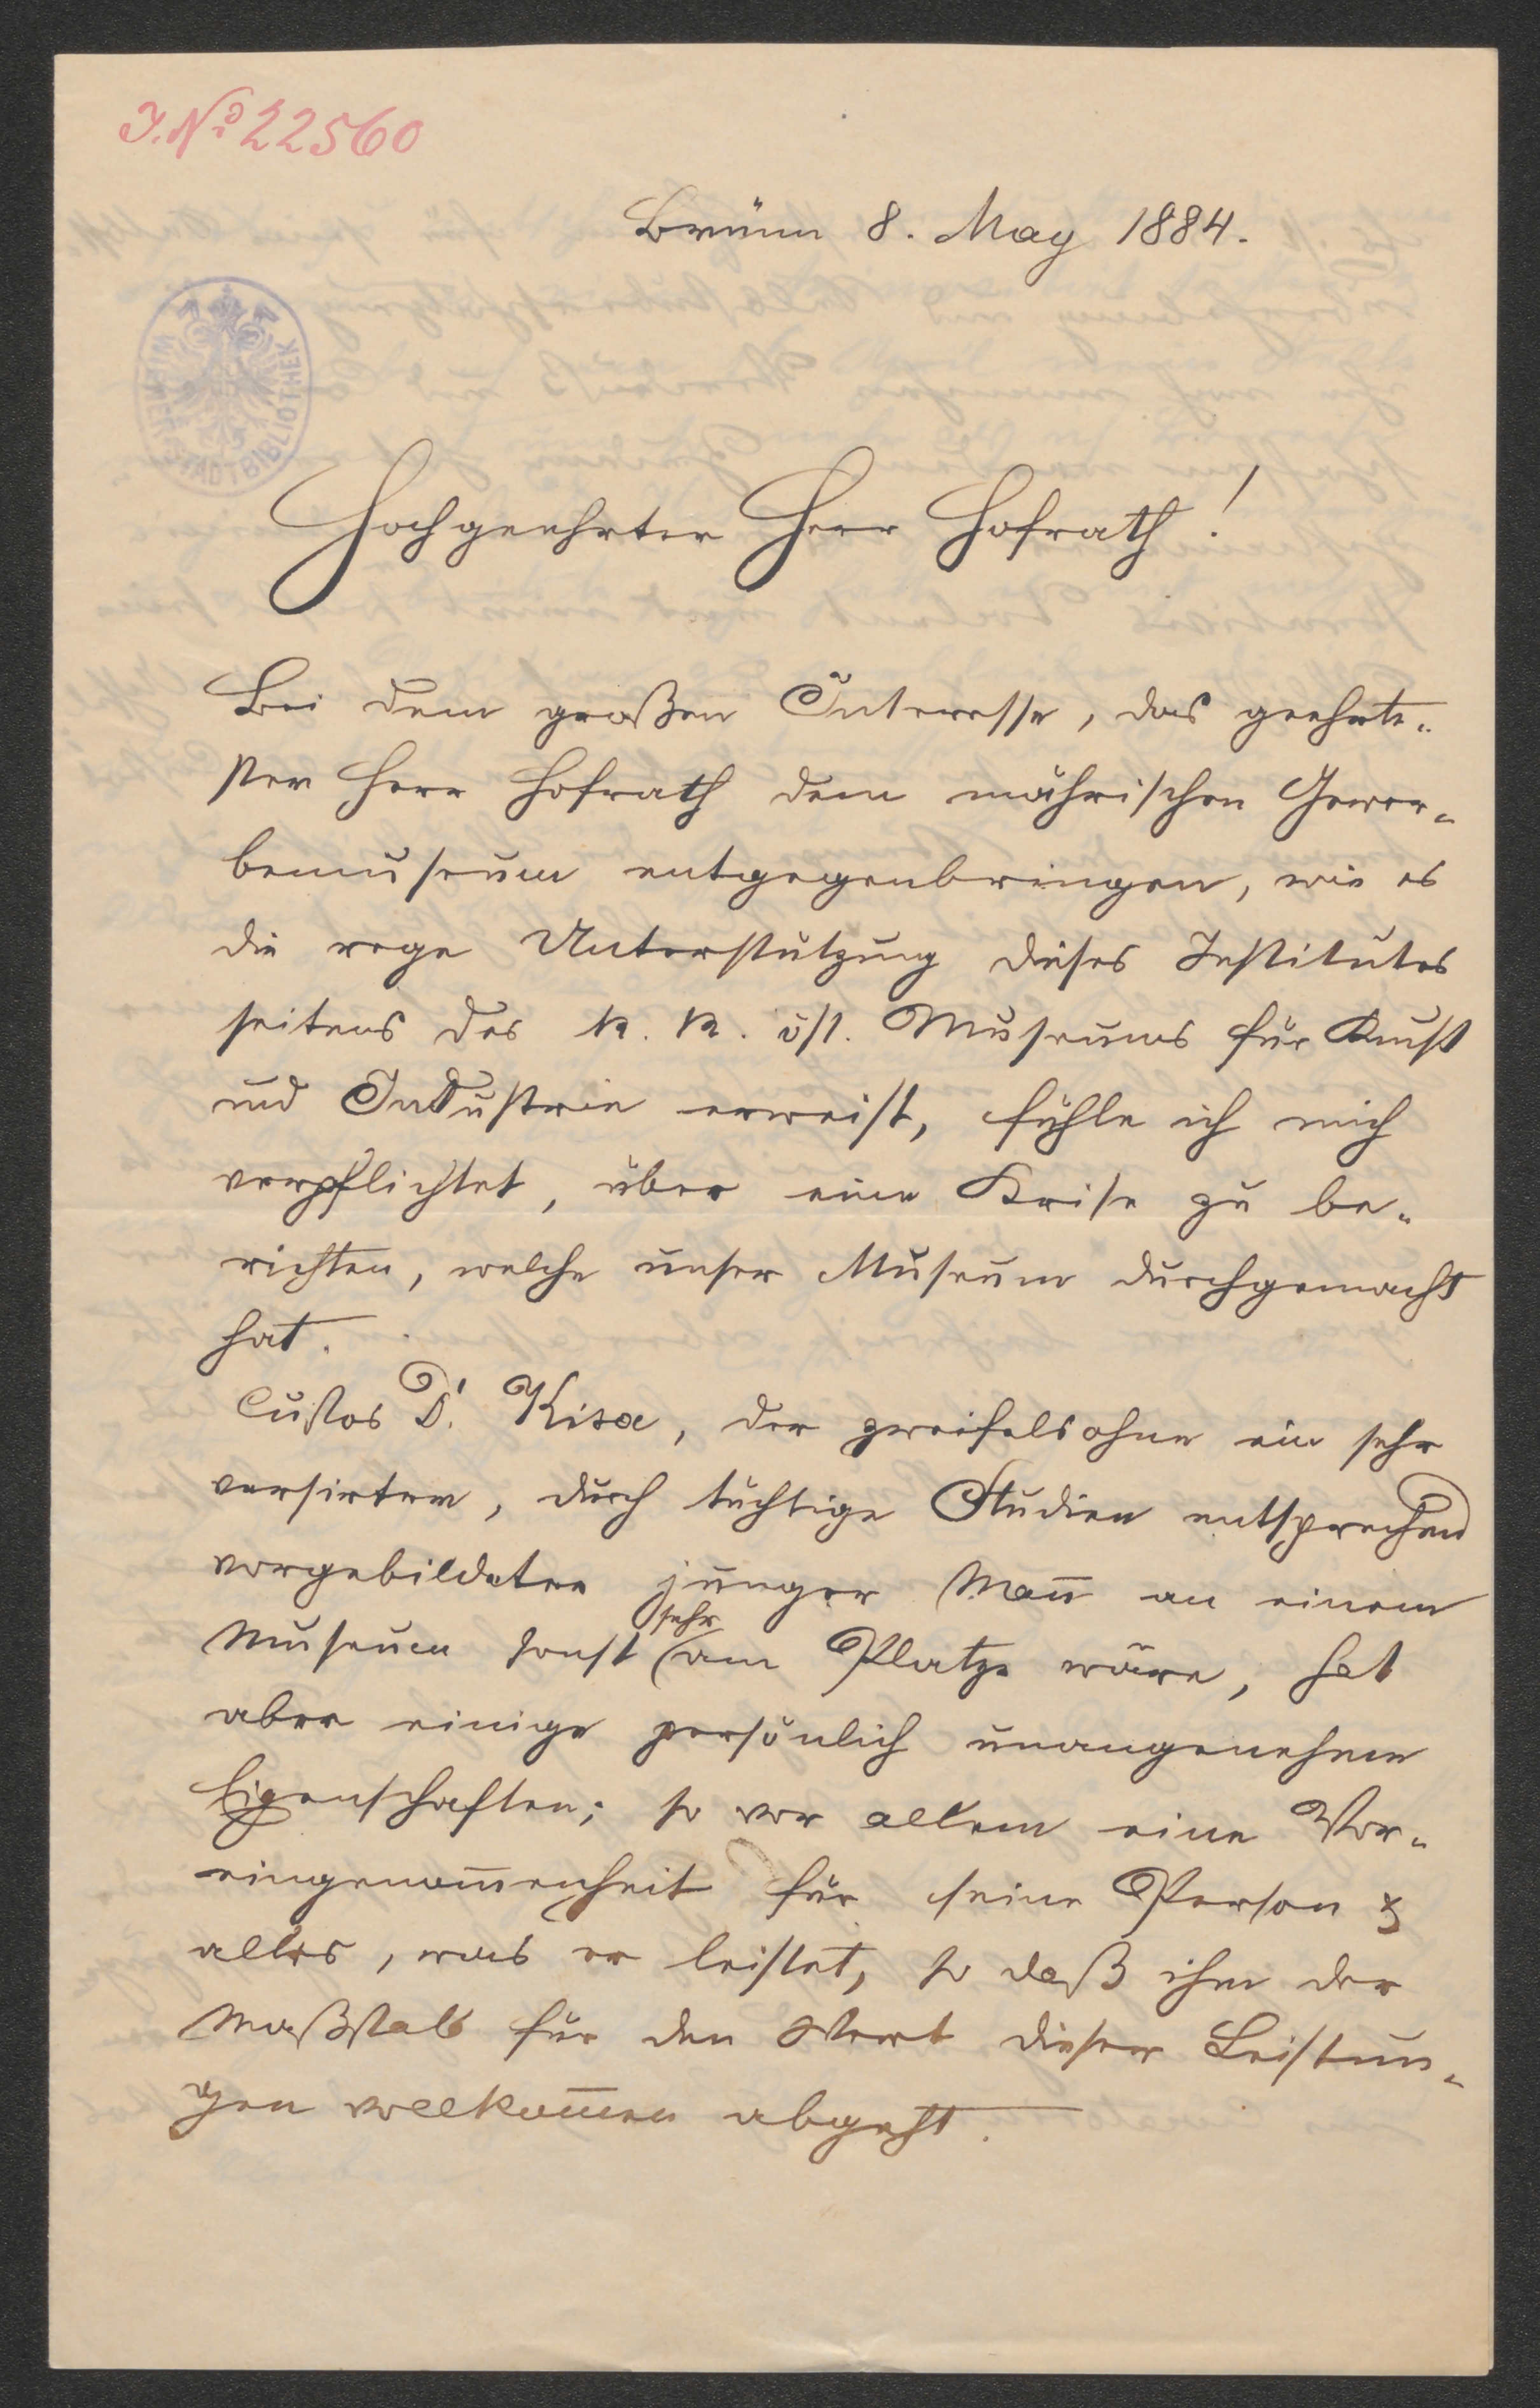 J. No 22560
Brünn 8. May 1884.
WIENER STADTBIBLIOTHEK
Hochgeehrter Herr Hofrath!
Bei dem großen Interesse, das geehrte-
ster Herr Hofrath dem mährischen Gewer-
bemuseum entgegenbringen, wie es
die rege Unterstützung dieses Institutes
seitens des k. k. öst. Museums für Kunst
und Industrie erweist, fühle ich mich
verpflichtet, über eine Krise zu be-
richten, welche unser Museum durchgemacht
hat.
Custos Dr. Kisa, der zweifelsohne ein sehr
versirter, durch tüchtige Studien entsprechend
vorgebildeter junger Man̅ an einem
Museum sonst sehr am Platze wäre, hat
aber einige persönlich unangenehme
Eigenschaften; so vor allem eine Vor-
eingenom̅enheit für seine Person &
alles, was er leistet, so daß ihm der
Maßstab für den Wert dieser Leistun-
gen vollkom̅en abgeht.